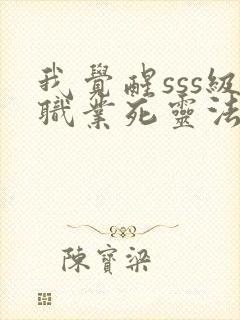 我覺醒sss級
職業死靈法
陳寶梁